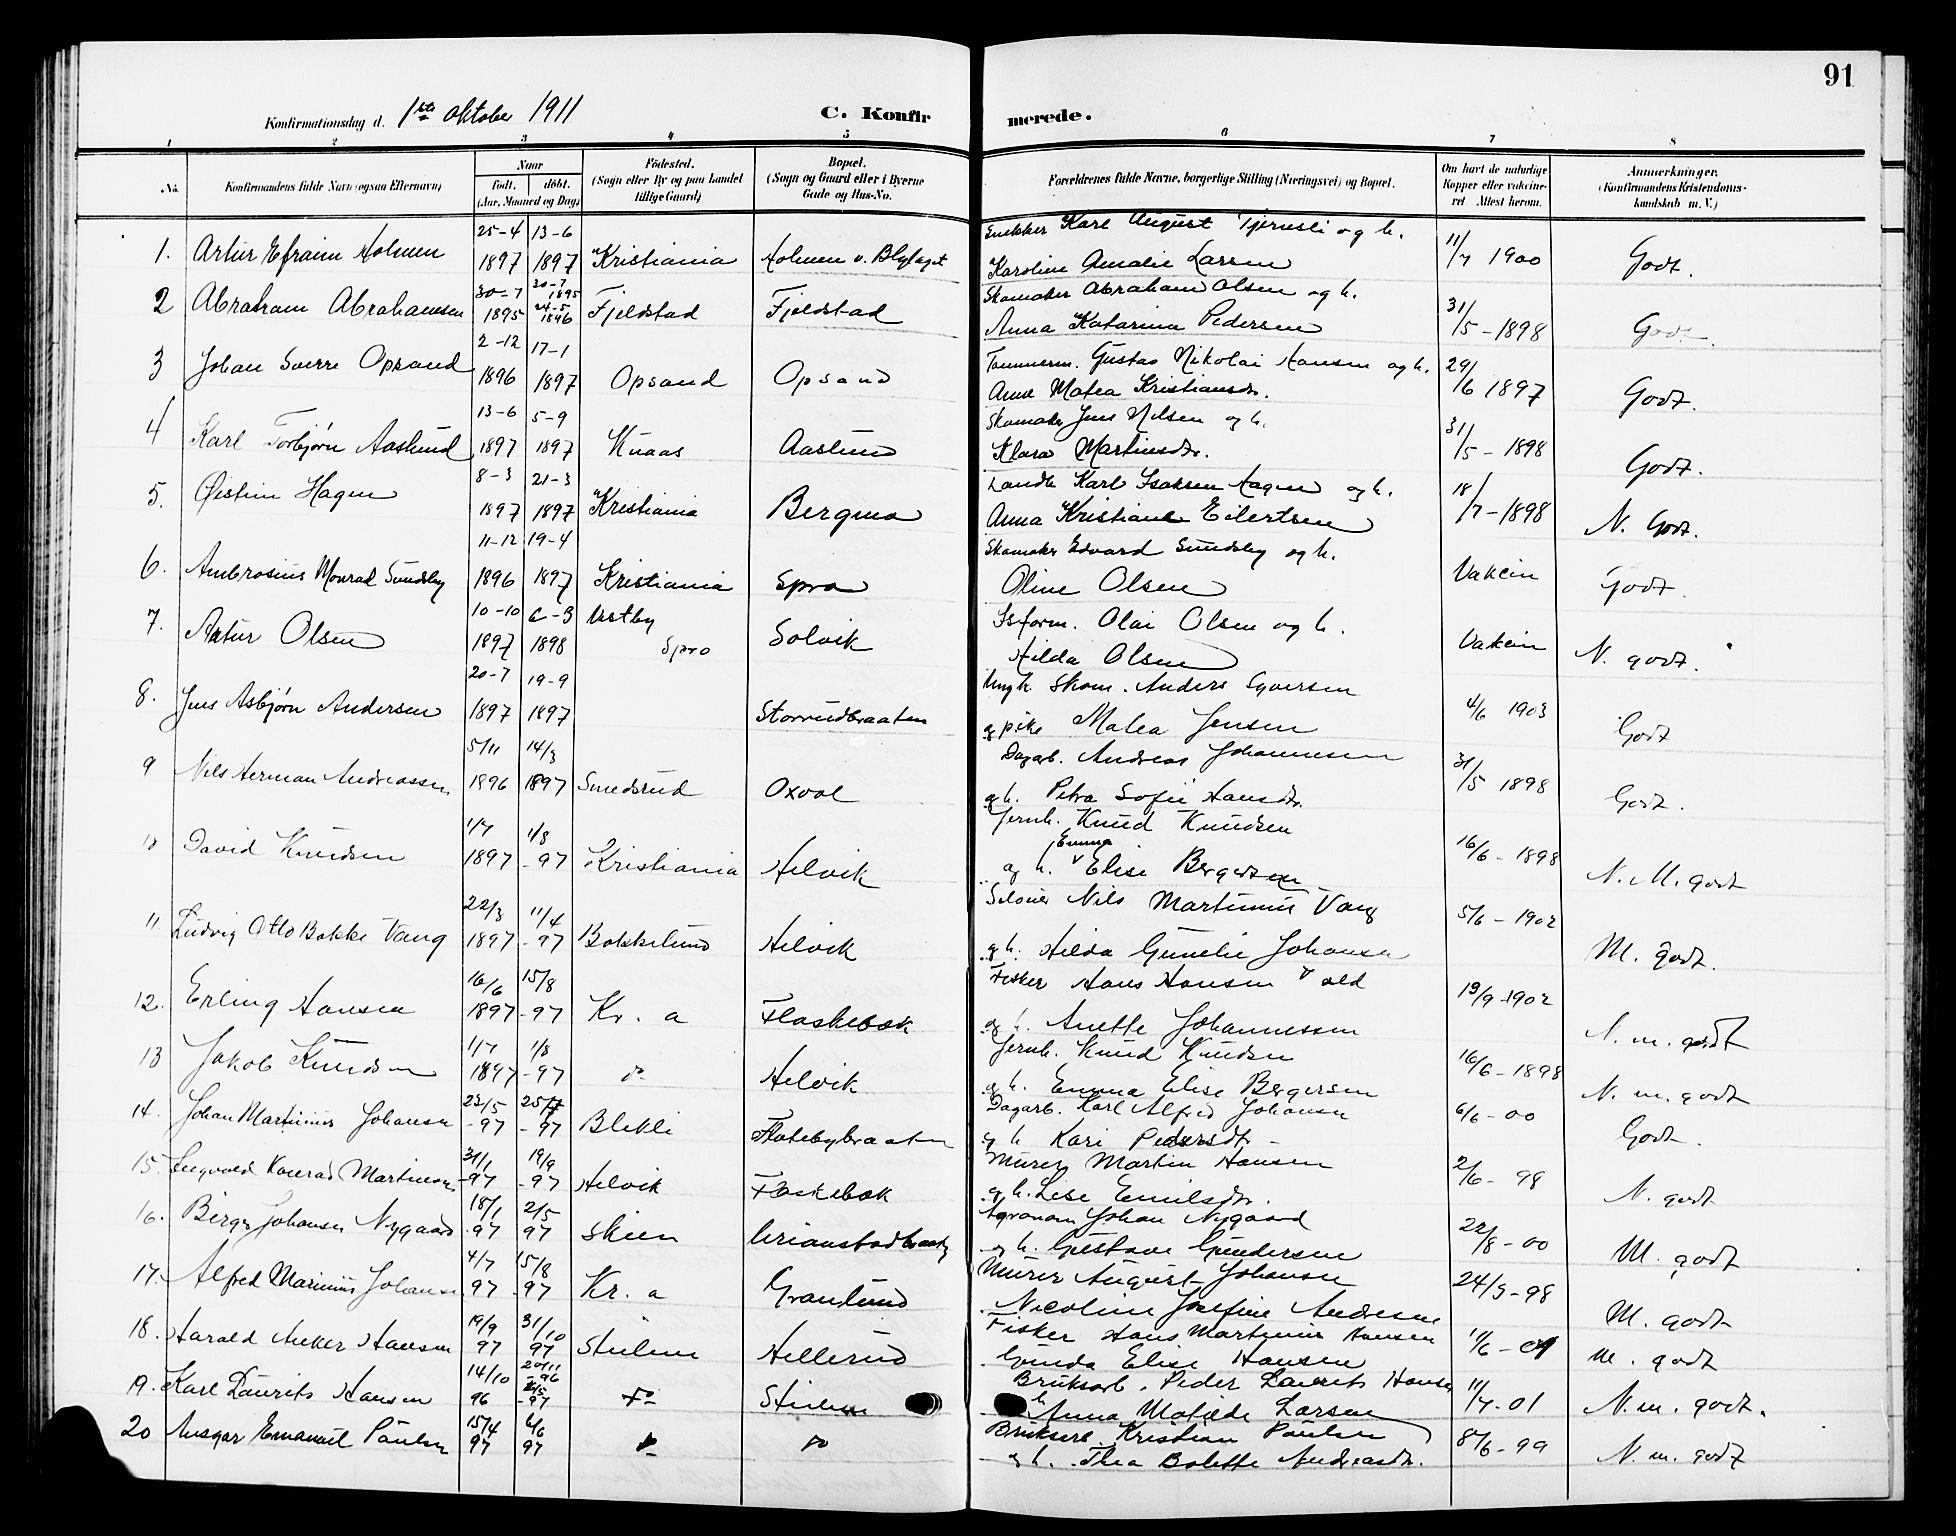 91
Konfirmationsdag d. 1ste Oktober 1911 C. Konfirmerede.
1 2 3 4 5 6 7 8
No. Konfirmandens fulde Navn (ogsaa Efternavn) Naar født. døbt. (Aar, Maaned og Dag) Födested. (Sogn eller By og paa Landet tillige Gaard) Bopæl. (Sogn og Gaard eller i Byerne Gade og Hus-No. Forældrenes fulde Navne, borgerlige Stilling (Næringsvei) og Bopæl. Om havt de naturlige Kopper eller vakcineret Attest herom. Anmærkninger. (Konfirmandens Kristendomskundskab m. V.)
1. Artur Efraim Holmen 25-4 1897 13-6 1897 Kristiania Holmen v. Blylaget Snekker Karl August Tjernsli og h. Karoline Amalie Larsen 11/7 1900 Godt.
2 Abraham Abrahamsen 30-7 1895 20-7 1895 24-5 1896 Fjeldstad Fjeldstad Skomaker Abraham Olsen og h. Anna Katarina Pedersen 31/5-1898 Godt.
3 Johan Sverre Opsand 2-12 1896 17-1 1897 Opsand Opsand Tømmerm. Gustav Nikolai Hansen og h. Anne Matea Kristiansdr. 29/6 1897 Godt.
4 Karl Torbjørn Aaslund 13-6 1897 5-9 1897 Knaas Aaslund Skomaker Jens Nilsen og h. Klara Martinsdr. 31/5-1898 Godt.
5. Øistein Hagen 8-3 1897 21-3 1897 Kristiania Bergmo Landh. Karl Isaksen Hagen og h. Anna Kristiane Eilertsen 18/7-1898 N. Godt.
6. Ambrosius Monrad Sundsby 11-12 1896 19-4 1897 Kristiania Spro Skomaker Edvard Sundsby og h. Oline Olsen Vakcin Godt.
7. Artur Olsen 10-10 1897 6-3 1898 Vestby Spro Solvik Isform. Olai Olsen og h. Hilda Olsen Vakcin N. godt.
8. Jens Asbjørn Andersen 20-7 1897 19-9 1897 Storrudbraaten Ungk. Skom. Anders Syversen og pike Matea Jensen 4/6 1903 Godt
9 Nils Herman Andreassen 5/11 1896 14/3 1897 Smedsrud Oxvol Dagarb. Andreas Johannesen og h. Petra Sofie Hansdr. 31/5 1898 Godt.
10 David Knudsen 1/7 1897 1/8 -97 Kristiania Helvik Jernh. Knud Knudsen og h. Emma Elise Bergersen 16/6-1898 N. M. godt
11 Ludvig Otto Bakke Vang 22/3 1897 11/4 -97 Bakkelund Helvik Nils Martinius Vang og h. Hilda Gunelie Johansen 5/6-1902 M. godt.
12. Erling Hansen 16/6 1897 15/8 -97 Kr. a Flaskebæk Fisker Hans Hansen og h. Anette Johannessen 19/9-1902 N. m. godt
13 Jakob Knudsen 1/7 1897 1/8 -97 do Helvik Jernh. Knud Knudsen og h. Emma Elise Bergersen 16/6-1898 N. m. godt
14. Johan Martinius Johansen 23/5 -97 25/7 -97 Blekli Flatebybraaten Dagarb. Karl Alfred Johansen og h Kari Pedersdr. 6/6-00 Godt.
15. Ingvald Konrad Martinsen 31/1 -97 19/9 -97 Helvik Flaskebæk Murer Martin Hansen og h. Lise Emilsdr. 2/6-98 N. godt
16. Birger Johansen Nygaard 18/1 97 2/5 97 Skien Agronom Johan Nygaard og h. Gustava Gundersen 22/8-00 M. godt
17. Alfred Marinius Johansen 4/7 97 15/8 97 Kr. a Granlund Murer August Johansen Nicoline Josefine Andresen 24/5-98 M. godt
18. Harald Anker Hansen 19/9 97 31/10 97 Stulen Hellerud Fisker Hans Martinius Hansen Gunda Elise Hansen 11/6-04 M. godt
19. Karl Laurits Hansen 14/10 96 -97 do Stulen Bruksarb. Peder Laurits Hansen h Anna Matilde Larsen 11/7-01 N. m. godt.
20 Ansgar Emanuel Paulsen 15/4 97 6/6 97 do do Bruksarb. Kristian Paulsen og h. Thea Bolette Andreasdr. 8/6-99 N. m. godt